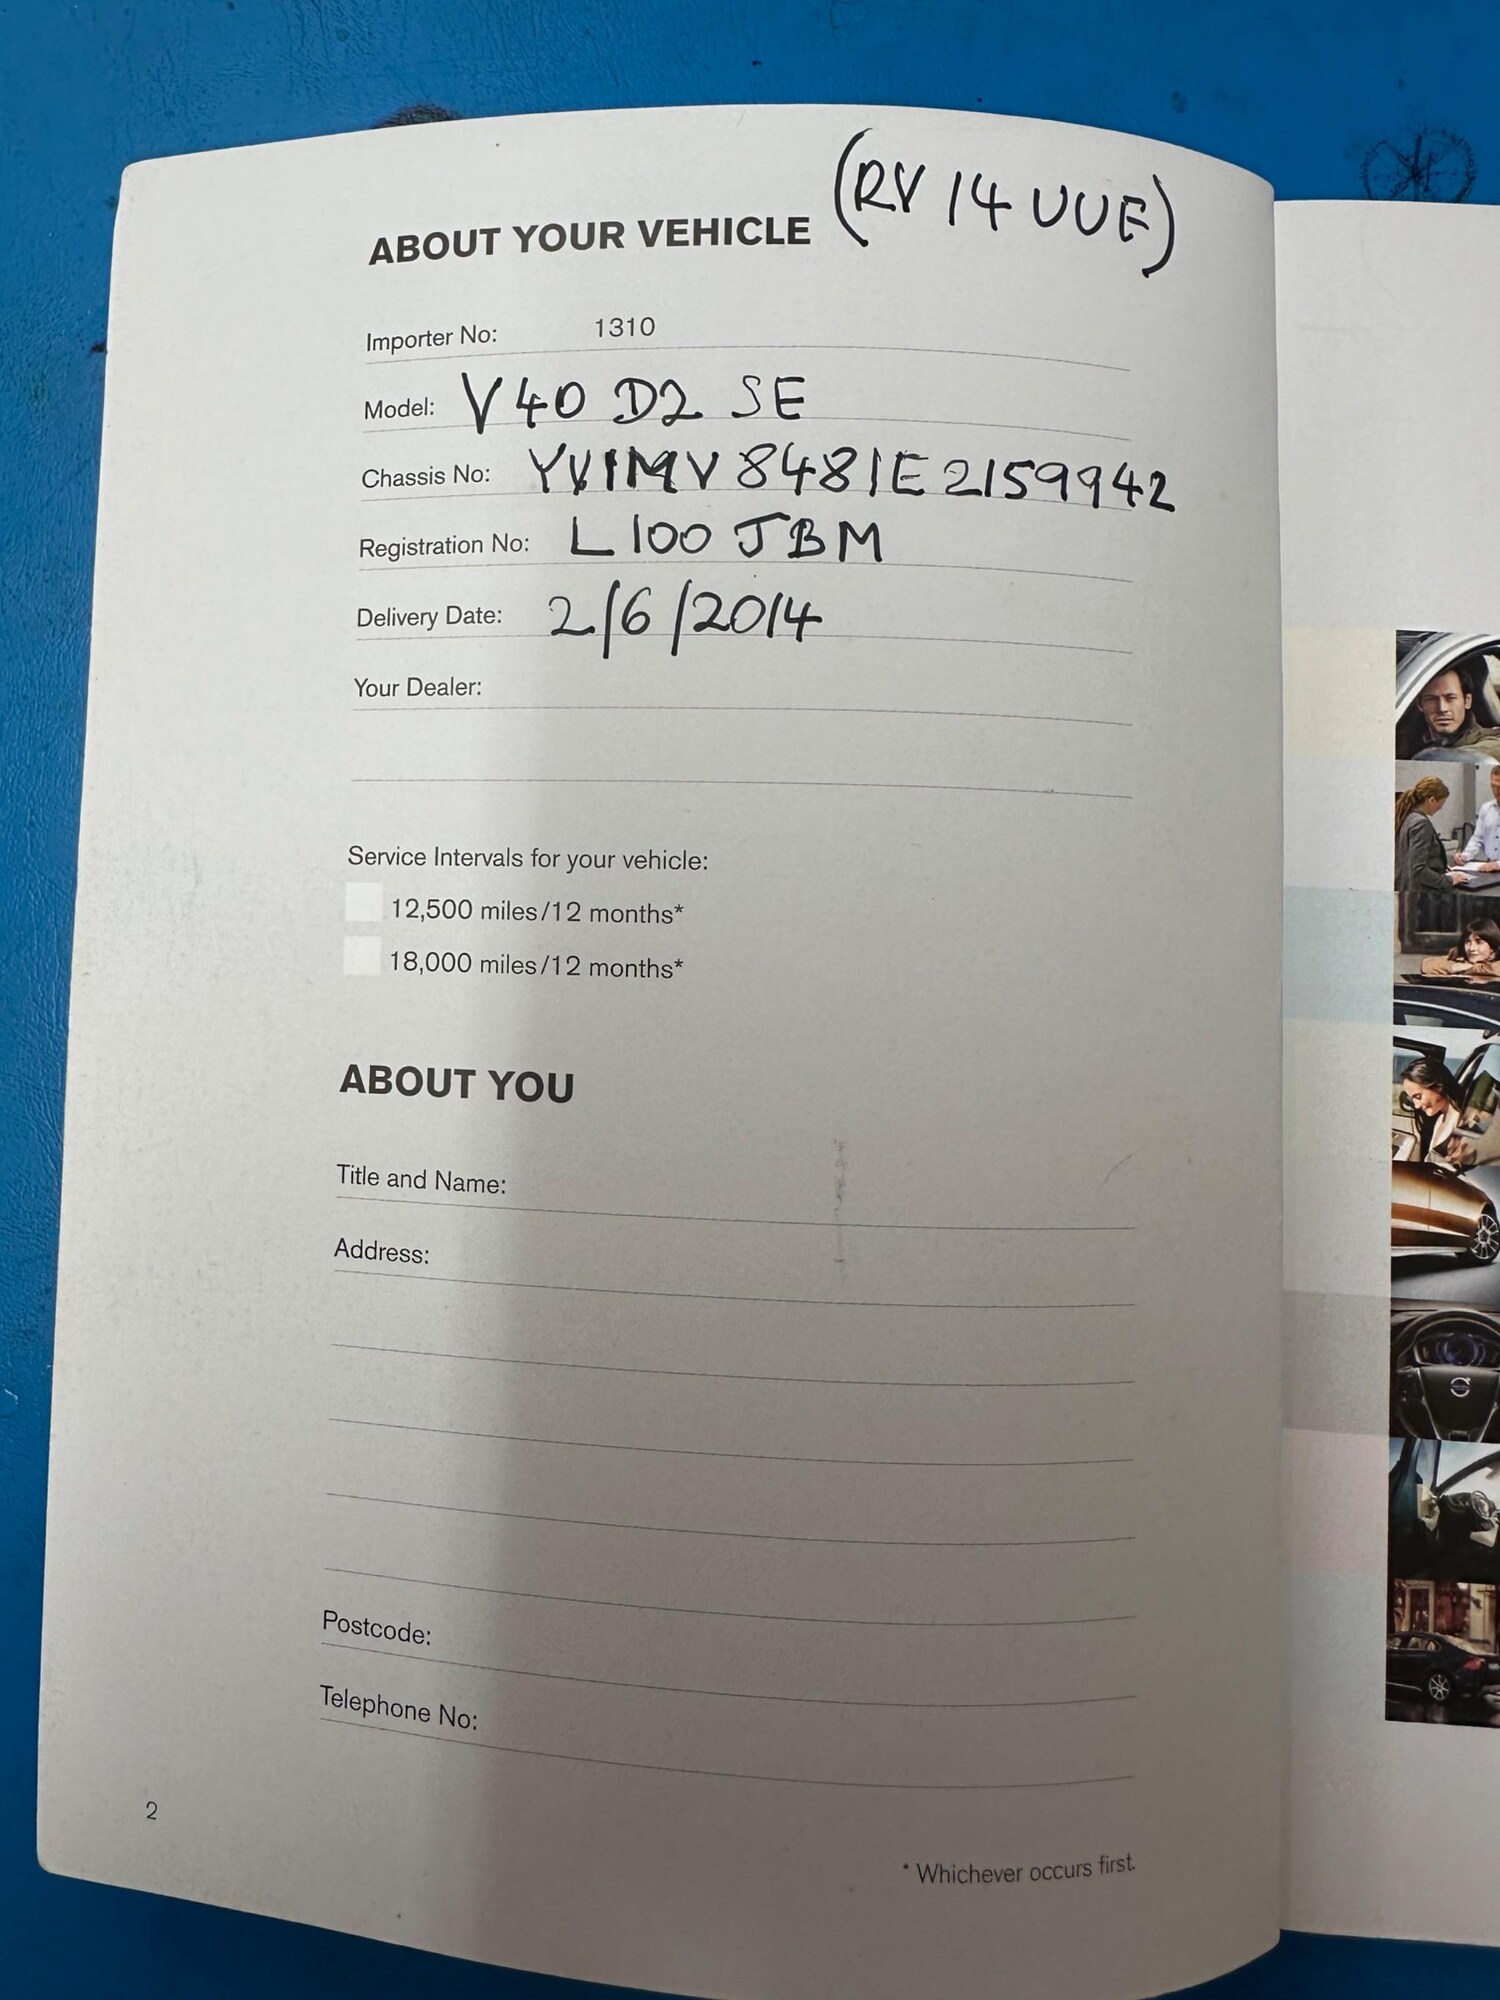 (RV 14 UUE)
ABOUT YOUR VEHICLE
Importer No: 1310
Model: V40 D2 SE
Chassis No: YV1MV8481E2159942
Registration No: L100 JBM
Delivery Date: 2/6/2014
Your Dealer:
Service Intervals for your vehicle:
12,500 miles/12 months*
18,000 miles/12 months*
ABOUT YOU
Title and Name:
Address:
Postcode:
Telephone No:
2
* Whichever occurs first.